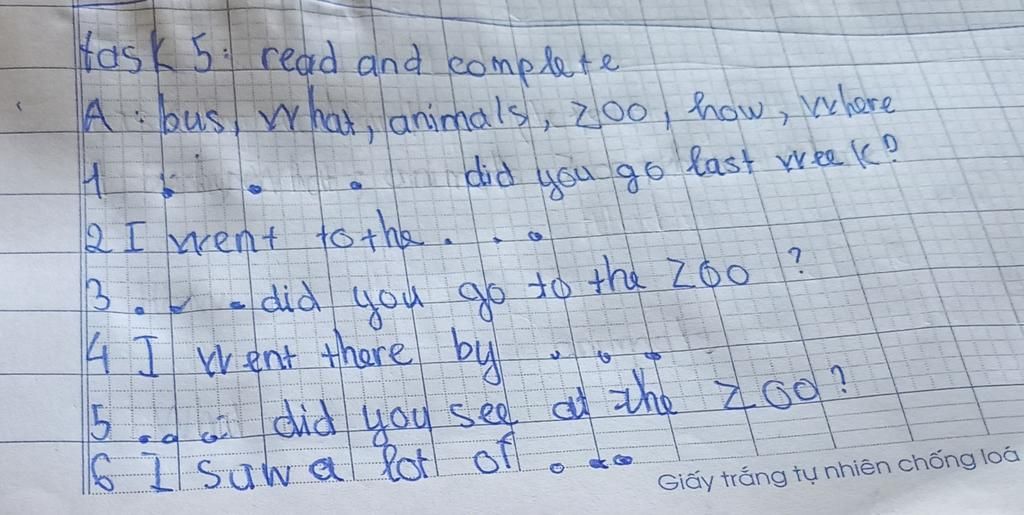 task 5: read and complete
A: bus, What, animals, zoo, how, Where
1 . . . did you go last week?
2 I went to the . . .
3 . . . did you go to the zoo?
4 I went there by . . .
5 . . . did you see at the zoo?
6 I saw a lot of . . .
Giấy trắng tự nhiên chống loá